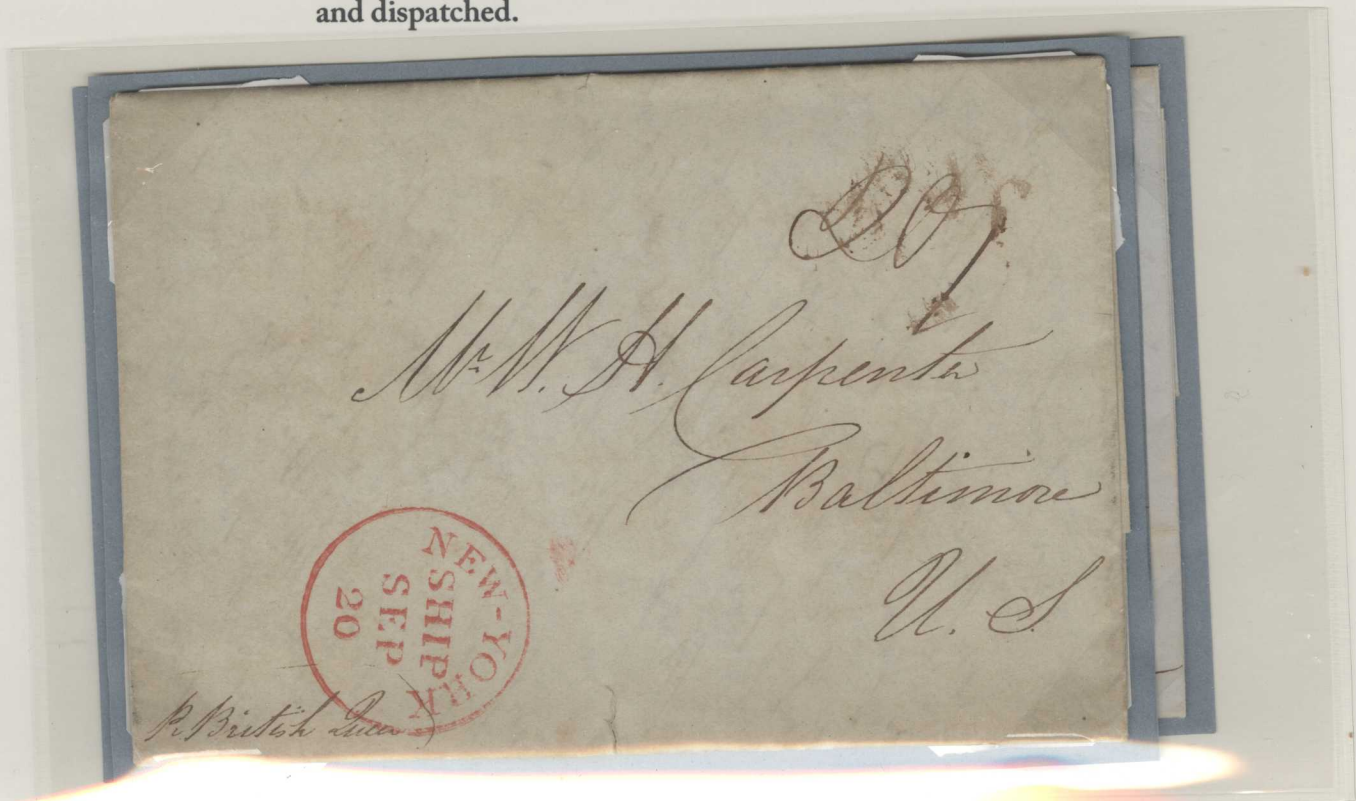 and dispatched.
Mr W. H. Carpenter
Baltimore
U. S.
NEW-YORK
SHIP
SEP
20
British Queen